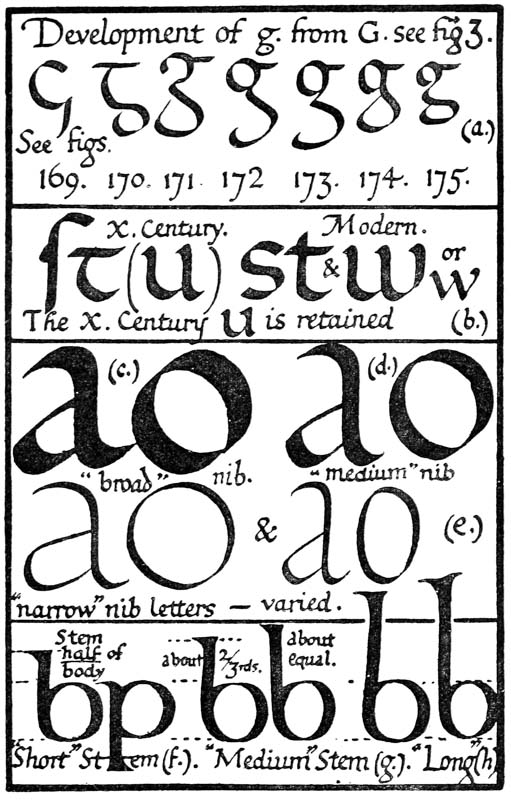 Development of g. from G. see fig 3.
g g g g g g g
See figs.
(a.)
169. 170. 171. 172 173. 174. 175.
X. Century. Modern.
ſt (u) st & w or w
The X. Century u is retained (b.)
a o (c.) a o (d.)
"broad" nib. "medium" nib
a o & a o (e.)
"narrow" nib letters — varied.
Stem half of body
about 2/3rds.
about equal.
b p b b b b
"Short" Stem (f.). "Medium" Stem (g.). "Long" (h)